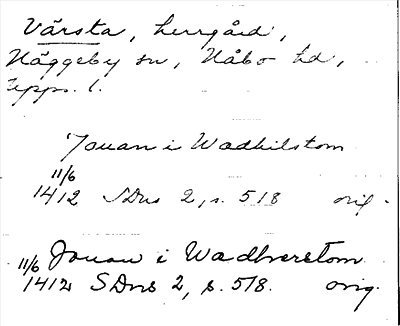 Värsta, herrgård,
Häggeby sn, Håbo hd,
Upps. l.
Jouan i Wadhilstom
11/6
1412 SDns 2, s. 518 orig.
11/6 Jouan i Wadhverstom
1412 SDns 2, s. 518. orig.